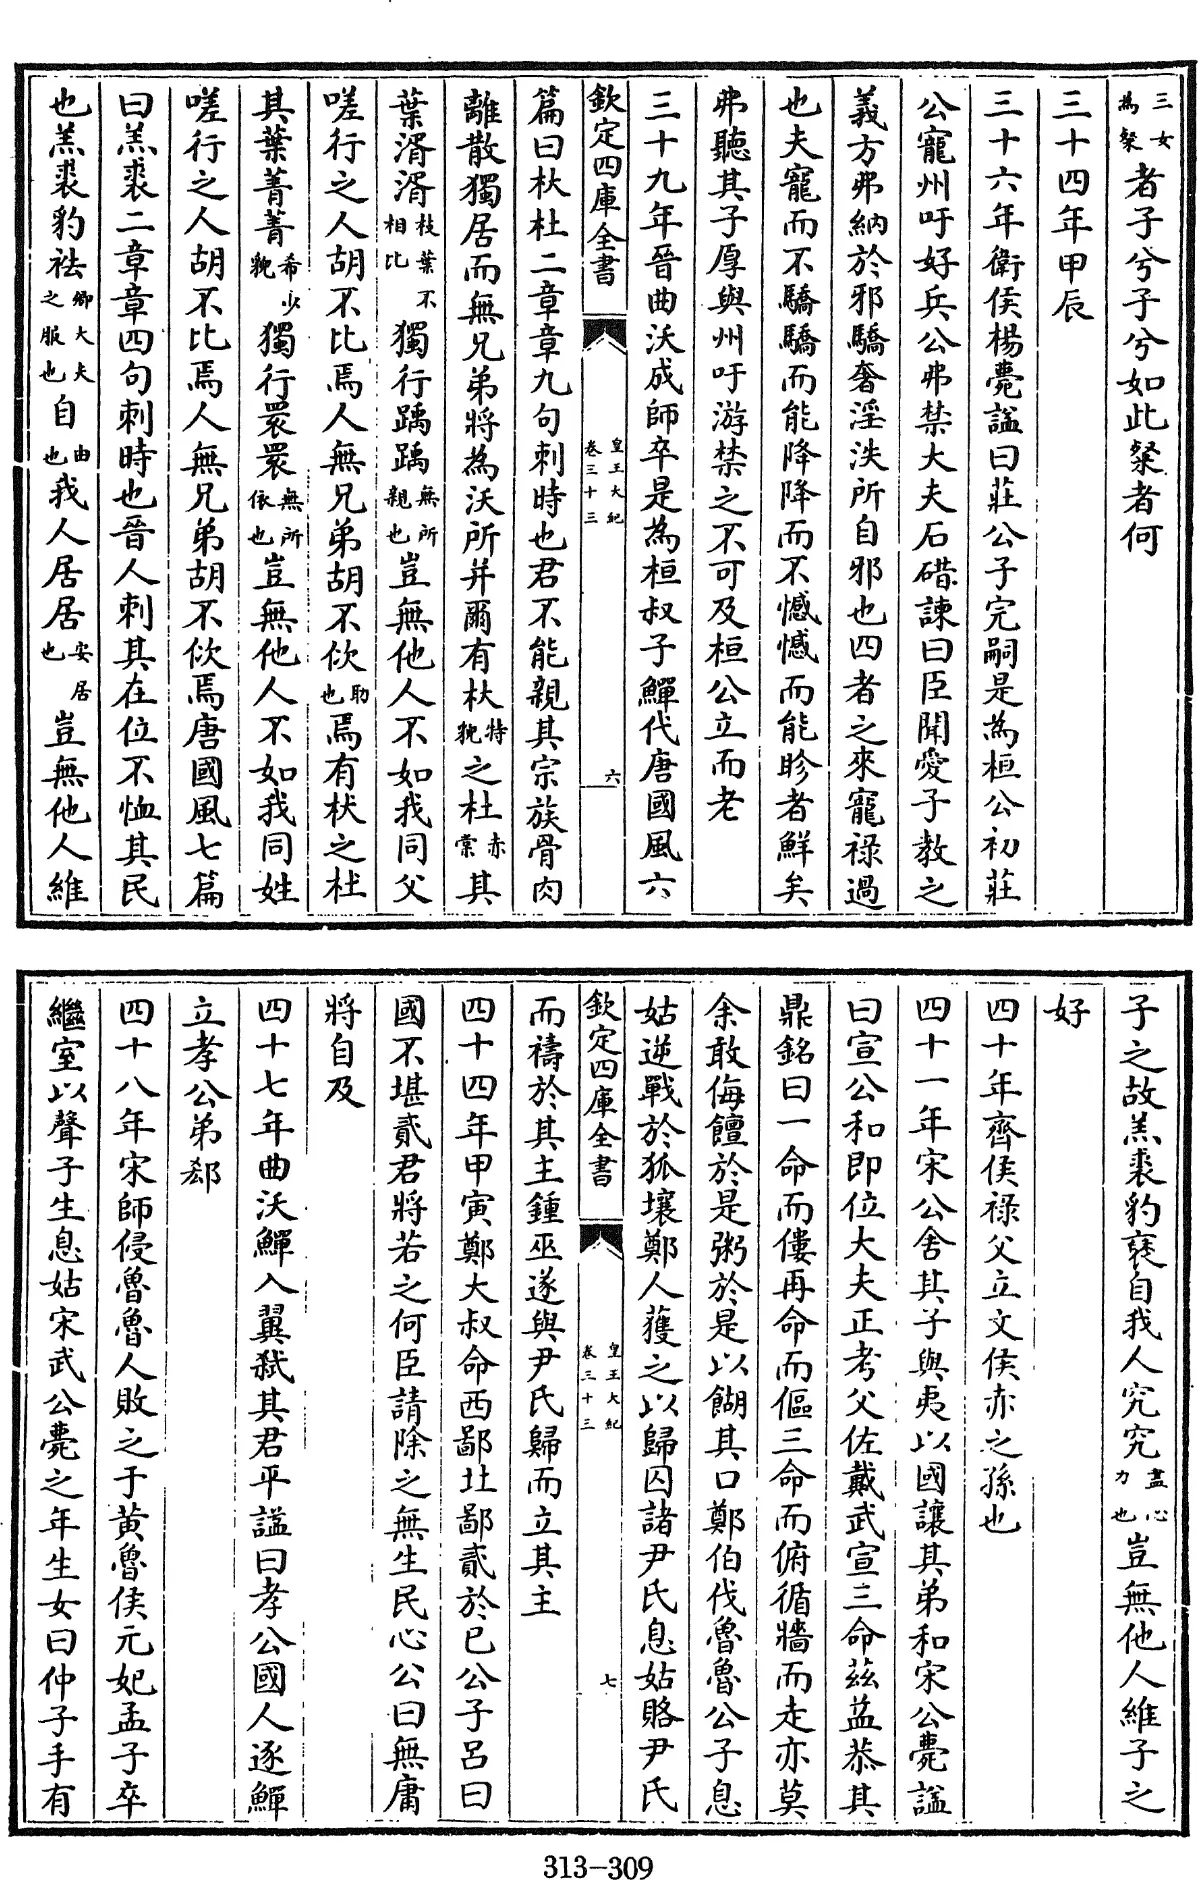 三女為粲者子兮子兮如此粲者何
三十四年甲辰
三十六年衛侯楊薨諡曰莊公子完嗣是為桓公初莊
公寵州吁好兵公弗禁大夫石碏諫曰臣聞愛子教之
義方弗納於邪驕奢淫泆所自邪也四者之來寵祿過
也夫寵而不驕驕而能降降而不憾憾而能眕者鮮矣
弗聽其子厚與州吁游禁之不可及桓公立而老
三十九年晉曲沃成師卒是為桓叔子鱓代唐國風六
欽定四庫全書
皇王大紀
卷三十三
六
篇曰杕杜二章章九句刺時也君不能親其宗族骨肉
離散獨居而無兄弟將為沃所并爾有杕特貌之杜赤棠其
葉湑湑枝葉不相比獨行踽踽無所親也豈無他人不如我同父
嗟行之人胡不比焉人無兄弟胡不佽助也焉有杕之杜
其葉菁菁希少貌獨行睘睘無所依也豈無他人不如我同姓
嗟行之人胡不比焉人無兄弟胡不佽焉唐國風七篇
曰羔裘二章章四句刺時也晉人刺其在位不恤其民
也羔裘豹袪卿大夫之服也自由也我人居居安居也豈無他人維
子之故羔裘豹褎自我人究究盡心力也豈無他人維子之
好
四十年齊侯祿父立文侯赤之孫也
四十一年宋公舍其子與夷以國讓其弟和宋公薨諡
曰宣公和即位大夫正考父佐戴武宣三命茲益恭其
鼎銘曰一命而僂再命而傴三命而俯循牆而走亦莫
余敢侮饘於是粥於是以餬其口鄭伯伐魯魯公子息
姑逆戰於狐壤鄭人獲之以歸囚諸尹氏息姑賂尹氏
欽定四庫全書
皇王大紀
卷三十三
七
而禱於其主鍾巫遂與尹氏歸而立其主
四十四年甲寅鄭大叔命西鄙北鄙貳於已公子呂曰
國不堪貳君將若之何臣請除之無生民心公曰無庸
將自及
四十七年曲沃鱓入翼弒其君平諡曰孝公國人逐鱓
立孝公弟郄
四十八年宋師侵魯魯人敗之于黃魯侯元妃孟子卒
繼室以聲子生息姑宋武公薨之年生女曰仲子手有
313-309